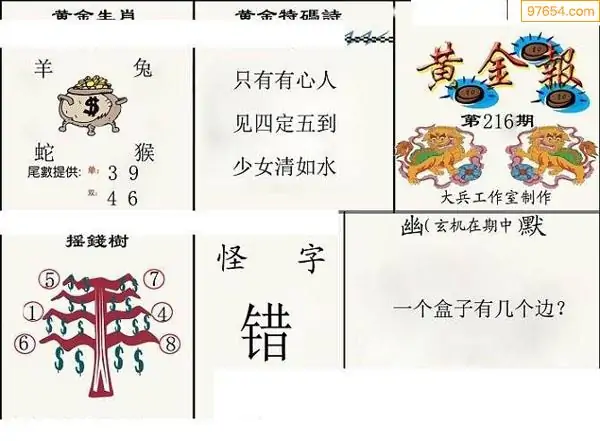 97654.com
黄金生肖
羊 兔
蛇 猴
尾數提供: 单: 3 9
双: 4 6
黄金特碼詩
只有有心人
见四定五到
少女清如水
黄金報
第216期
大兵工作室制作
摇錢樹
⑤ ⑦
① ④
⑥ ⑧
怪 字
错
幽(玄机在期中)默
一个盒子有几个边?